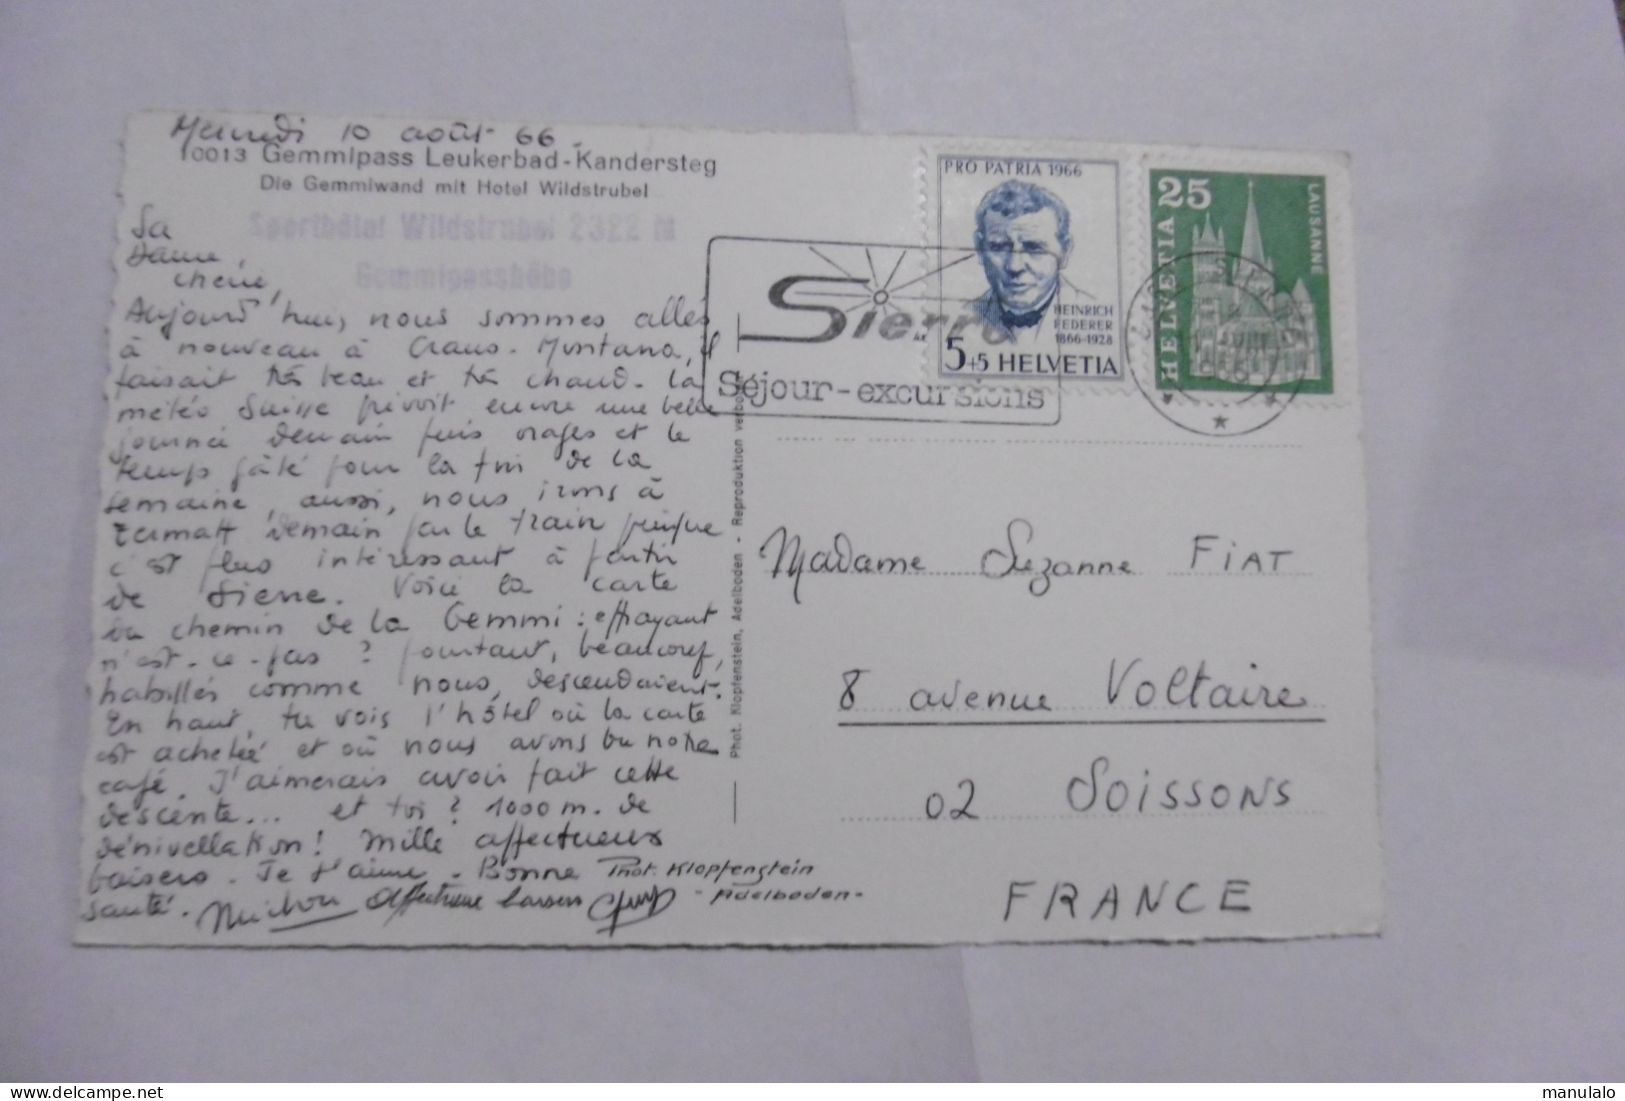 Mercredi 10 août 66.
10013 Gemmipass Leukerbad-Kandersteg
Die Gemmiwand mit Hotel Wildstrubel
Sporthôtel Wildstrubel 2322 M
Gemmipasshöhe
Ma
Dame,
chérie,
Aujourd'hui, nous sommes allés
à nouveau à Crans-Montana, il
faisait très beau et très chaud. La
météo Suisse prévoit encore une belle
journée demain puis orages et le
temps gâté pour la fin de la
semaine, aussi, nous irons à
Zermatt demain par le train puisque
c'est plus intéressant à partir
de Sierre. Voici la carte
du chemin de la Gemmi : effrayant
n'est-ce-pas ? pourtant, beaucoup,
habillés comme nous, descendaient.
En haut, tu vois l'hôtel où la carte
est achetée et où nous avons bu notre
café. J'aimerais avoir fait cette
descente... et toi ? 1000 m. de
dénivellation ! Mille affectueux
baisers. Je t'aime. Bonne
santé.
Phot. Klopfenstein
- Adelboden -
Phot. Klopfenstein, Adelboden - Reproduktion verboten
PRO PATRIA 1966
HEINRICH
FEDERER
1866-1928
5+5 HELVETIA
25
HELVETIA
LAUSANNE
Sierre
Séjour-excursions
Madame Suzanne FIAT
8 avenue Voltaire
02 SOISSONS
FRANCE
manulalo